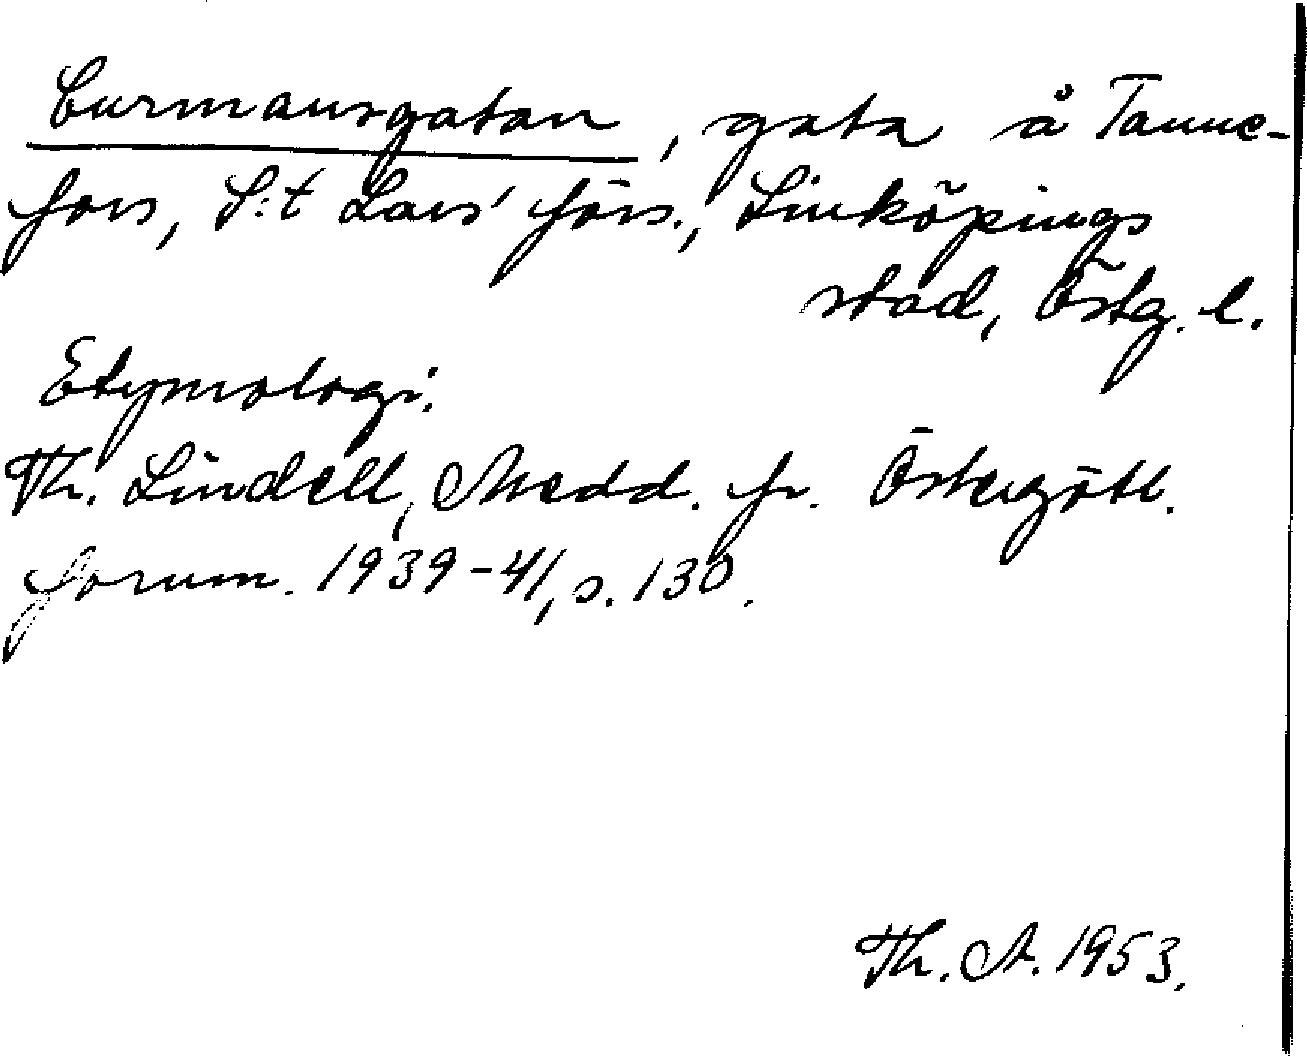 Curmansgatan, gata å Tanne-
fors, S:t Lars' förs., Linköpings
stad, Östg. l.
Etymologi.
Th. Lindell, Medd. fr. Östergötl.
forum. 1939-41, s. 130.
Th. A. 1953.